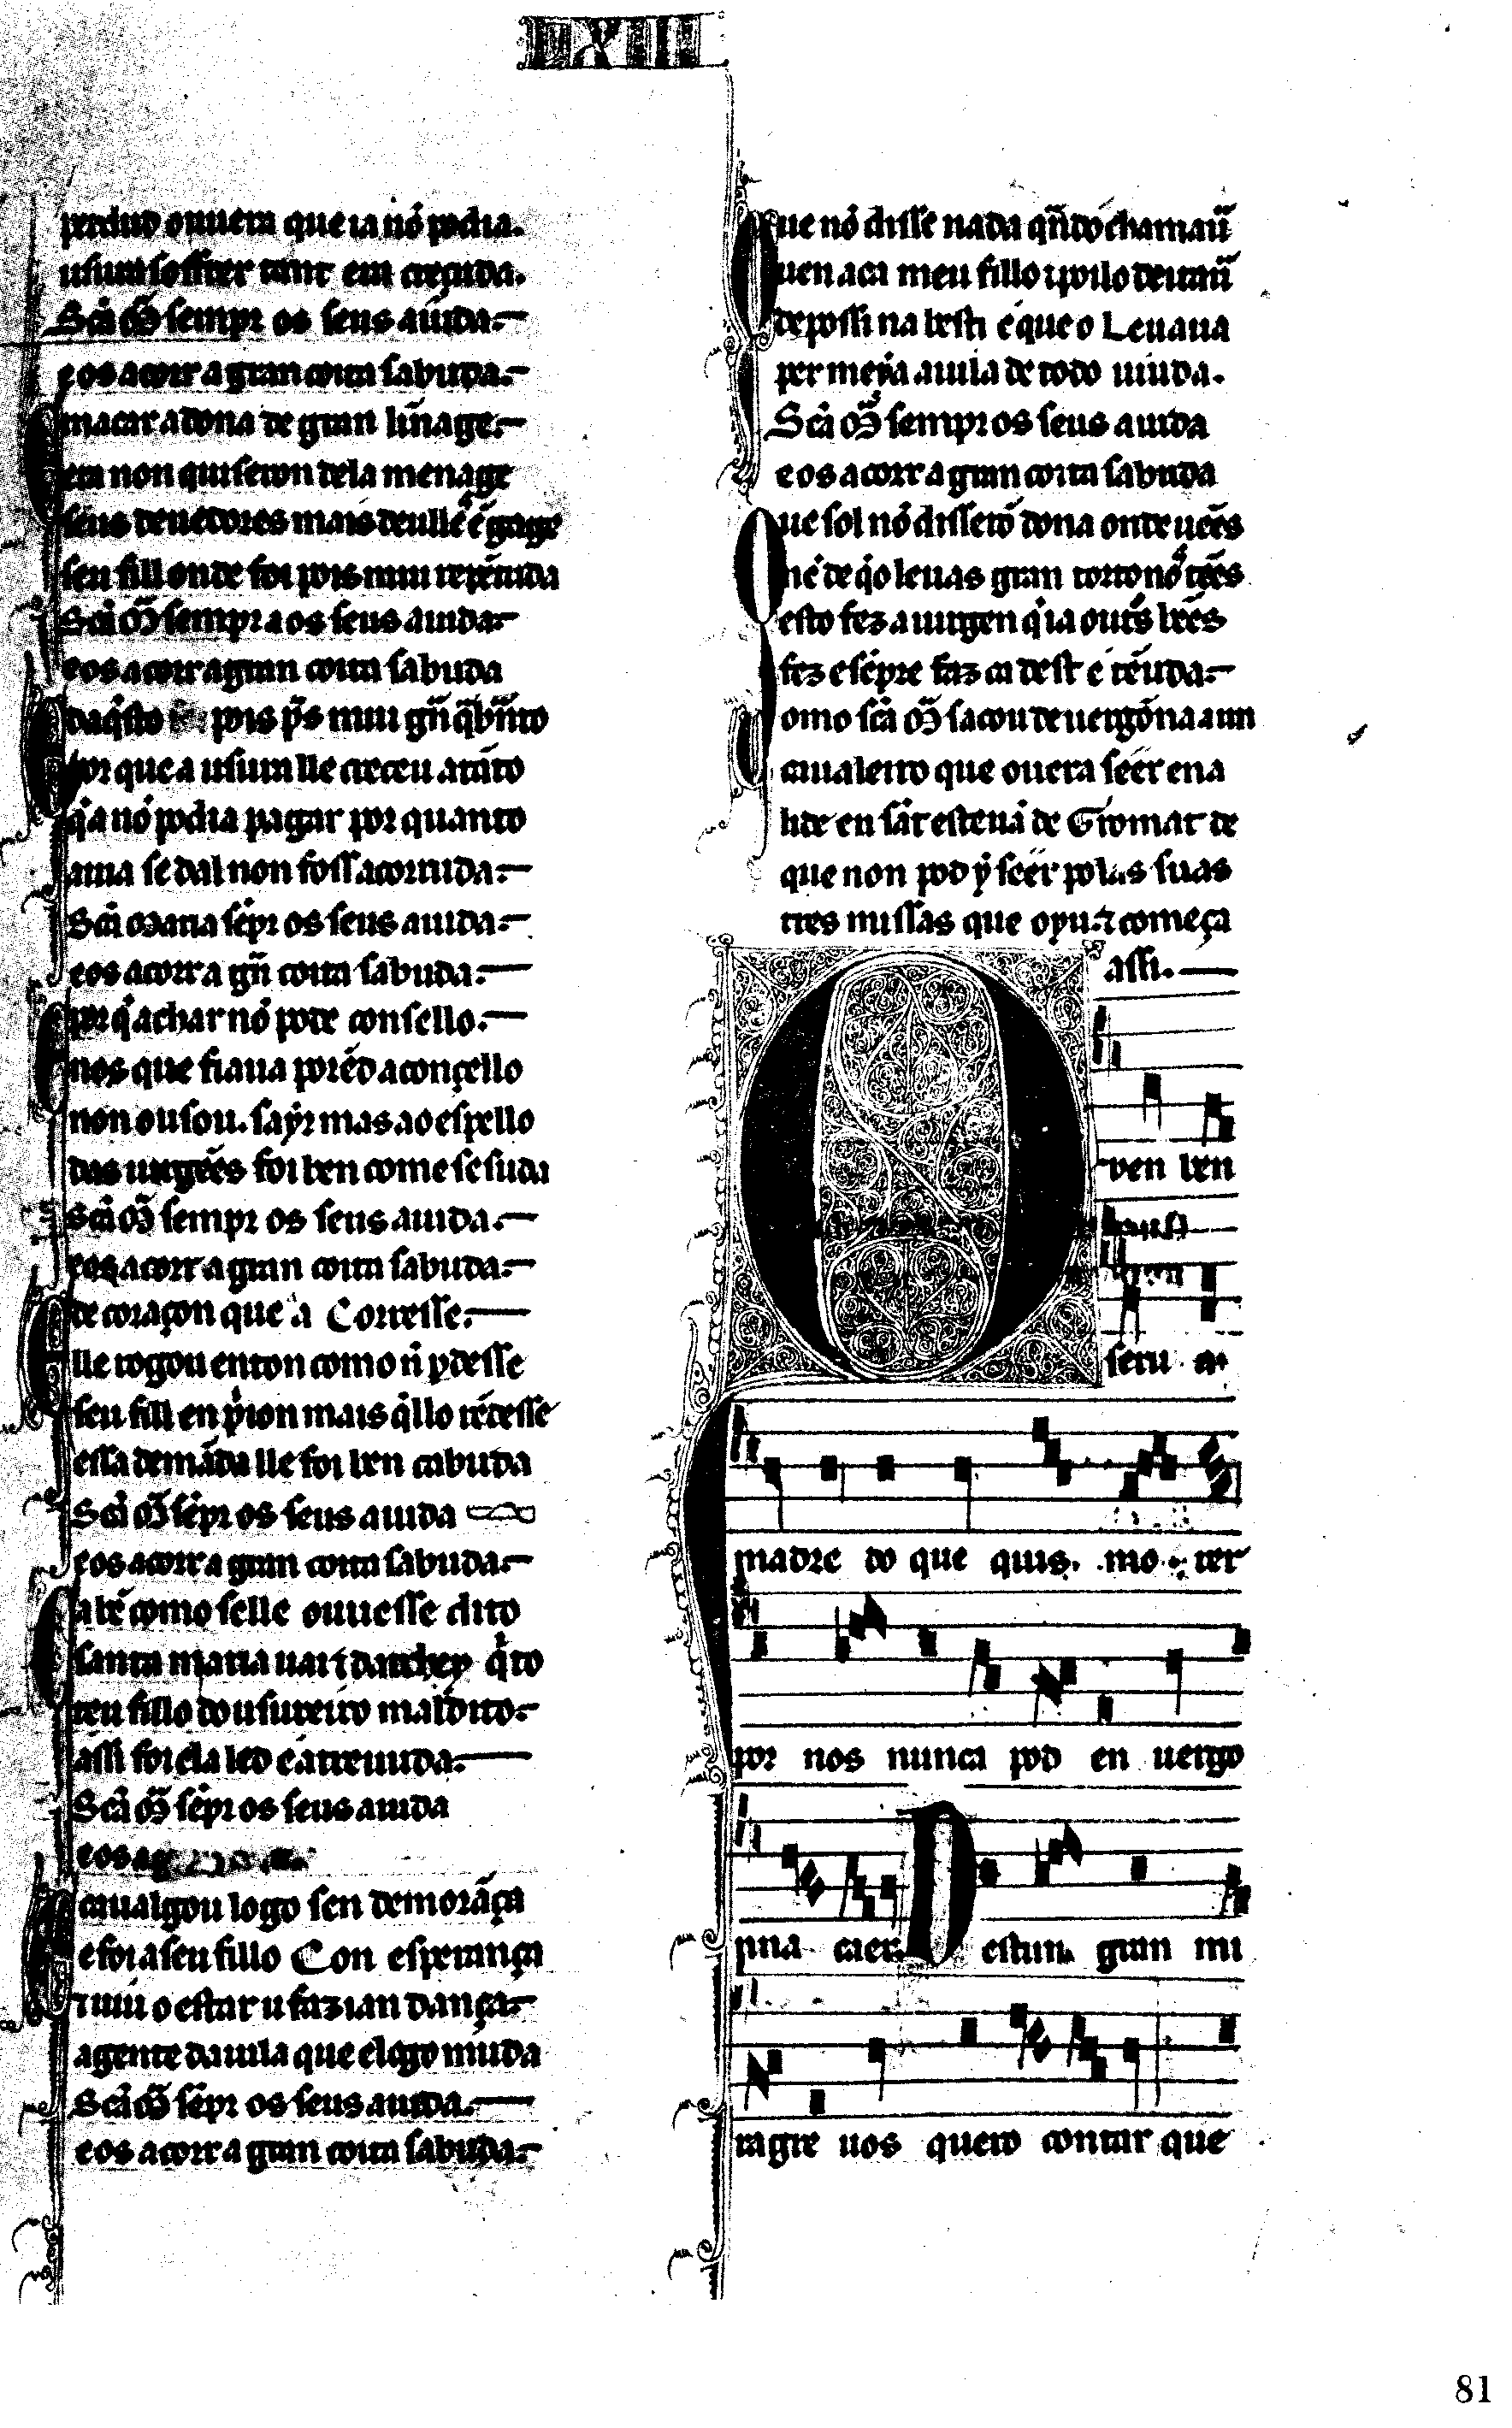 LXIII
perdud ouuera que ia nõ podia.
usura soffrer tant era creçuda.
Sc̃a M̃ sempr os seus aiuda.
e os acorr a gran coita sabuda.
macar a dona de gran lin̄age.
era non quiseron dela menage
seus deuedores mais deulle ẽ gage
seu fill onde foi pois mui repẽtuda
Sc̃a M̃ sempr a os seus aiuda
e os acorr a gran coita sabuda
daq̃sto pois p̃s mui gr̃n q̃br̃nto
por que a usura lle creceu atãto
q̃a nõ podia pagar por quanto
auia se dal non foss acorruda.
Sc̃a Maria sẽpr os seus aiuda.
e os acorr a gr̃n coita sabuda.
por q̃ achar nõ pode consello.
nos que fiaua porẽd a conçello
non ousou. sayr mas ao espello
das uirgẽes foi ben come sesuda
Sc̃a M̃ sempr os seus aiuda.
e os acorr a gran coita sabuda.
de coraçon que a Corresse.
lle rogou enton como nõ pdesse
seu fill en prijon mais q̃llo rẽdesse
essa demãda lle foi ben cabuda
Sc̃a M̃ sẽpr os seus aiuda
e os acorr a gran coita sabuda.
a bẽ como selle ouuesse dito
santa maria uai ⁊ darch ey q̃to
teu fillo do usureiro maldito.
assi foi ela led e atreuuda.
Sc̃a M̃ sẽpr os seus aiuda
e os a
caualgou logo sen demorãça
e foi a seu fillo Con esperança
⁊ uiu o estar u fazian dança.
a gente da uila que elogo miuda
Sc̃a M̃ sẽpr os seus aiuda.
e os acorr a gran coita sabuda.
Que nõ disse nada qñdo chamau̅
uen aca meu fillo ⁊ poilo deuau̅
de possi na besti e que o Leuaua
per meya a uila de todo uiuda.
Sc̃a M̃ sempr os seus aiuda
e os acorr a gran coita sabuda
Que sol nõ disserõ dona onde uẽes
nẽ de q̃ o leuas gran torto nõ tẽes
esto fez a uirgen q̃ ia outs̃ bẽes
fez e sẽpre faz ca dest e tẽuda.
Como sc̃a M̃ sacou de uergõna a un
caualeiro que ouuera seer ena
lide en sãt esteuã de Gromar de
que non pod y seer polas suas
tres missas que oyu. ⁊ começa
assi.
Quen ben
seru a
madre do que quis. mo rer
por nos nunca pod en uergo
nna caer. Destun gran mi
ragre uos quero contar que
81